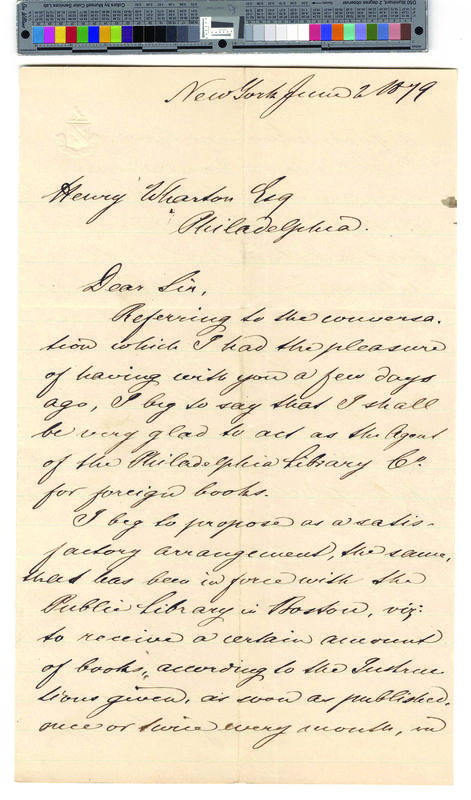 New York June 2 1879
Henry Wharton Esq
Philadelphia.
Dear Sir,
Referring to the conversa-
tion which I had the pleasure
of having with you a few days
ago, I beg to say that I shall
be very glad to act as the Agent
of the Philadelphia Library Co.
for foreign books.
I beg to propose as a satis-
factory arrangement, the same,
that has been in force with the
Public Library in Boston, viz:
to receive a certain amount
of books, according to the Instruc
tions given, as soon as published,
once or twice every month, in